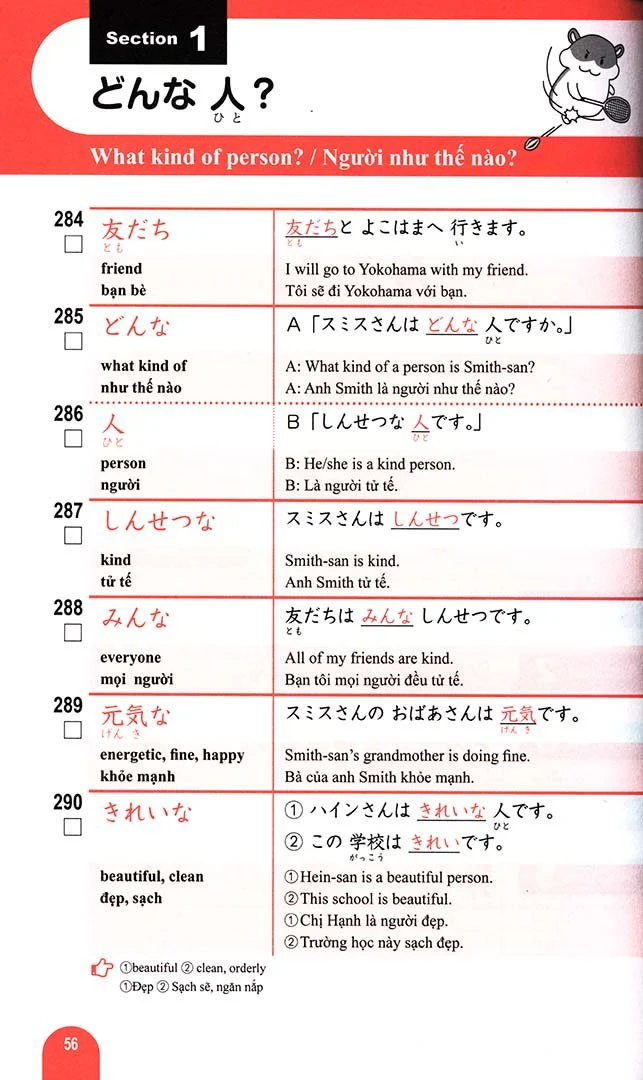 Section 1
どんな 人?
ひと
What kind of person? / Người như thế nào?
284
友だち
とも
friend
bạn bè
友だちと よこはまへ 行きます。
とも い
I will go to Yokohama with my friend.
Tôi sẽ đi Yokohama với bạn.
285
どんな
what kind of
như thế nào
A「スミスさんは どんな 人ですか。」
ひと
A: What kind of a person is Smith-san?
A: Anh Smith là người như thế nào?
286
人
ひと
person
người
B「しんせつな 人です。」
ひと
B: He/she is a kind person.
B: Là người tử tế.
287
しんせつな
kind
tử tế
スミスさんは しんせつです。
Smith-san is kind.
Anh Smith tử tế.
288
みんな
everyone
mọi người
友だちは みんな しんせつです。
とも
All of my friends are kind.
Bạn tôi mọi người đều tử tế.
289
元気な
げんき
energetic, fine, happy
khỏe mạnh
スミスさんの おばあさんは 元気です。
げんき
Smith-san's grandmother is doing fine.
Bà của anh Smith khỏe mạnh.
290
きれいな
beautiful, clean
đẹp, sạch
① ハインさんは きれいな 人です。
ひと
② この 学校は きれいです。
がっこう
①Hein-san is a beautiful person.
②This school is beautiful.
①Chị Hạnh là người đẹp.
②Trường học này sạch đẹp.
①beautiful ② clean, orderly
①Đẹp ② Sạch sẽ, ngăn nắp
56